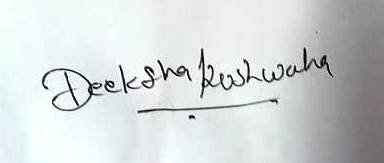 Deeksha Kushwaha